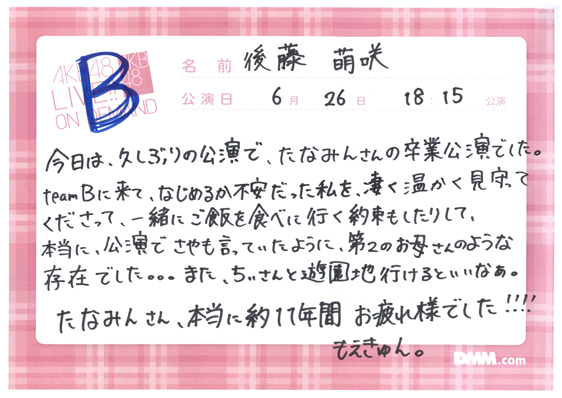 AKB48
LIVE!!
ON DEMAND
B
名前 後藤 萌咲
公演日 6月 26日 18:15 公演
今日は、久しぶりの公演で、たなみんさんの卒業公演でした。
teamBに来て、なじめるか不安だった私を、凄く温かく見守って
くださって、一緒にご飯を食べに行く約束もしたりして、
本当に、公演でさやも言っていたように、第2のお母さんのような
存在でした。。。また、ちぃさんと遊園地行けるといいなぁ。
たなみんさん、本当に約11年間 お疲れ様でした!!!!
もえきゅん。
DMM.com